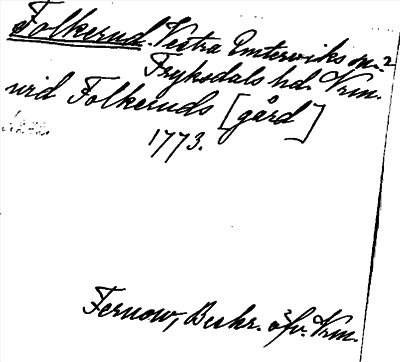 Folkerud. Vestra Emterviks sn.
Fryksdals hd. Vrm.
vid Folkeruds [gård]
1773.
Fernow, Beskr. öfv. Vrm.